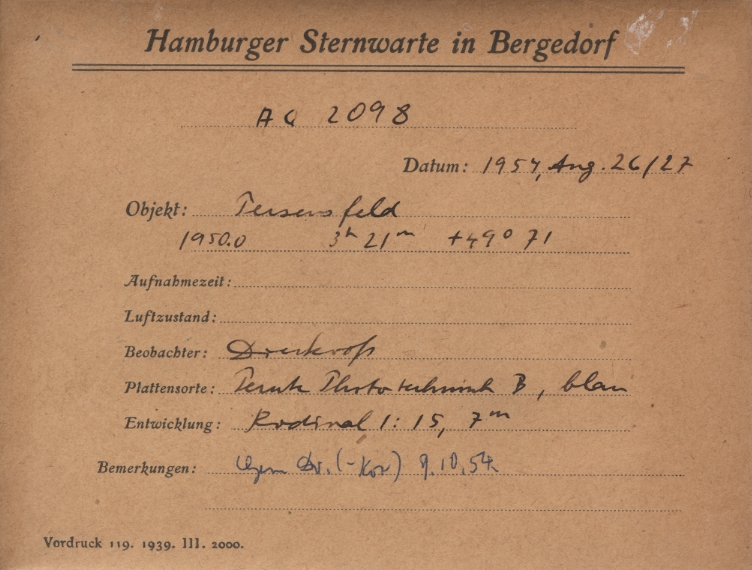 Hamburger Sternwarte in Bergedorf
AG 2098
Datum: 1954, Aug. 26/27
Objekt: Perseusfeld
1950.0 3h 21m +49° 71
Aufnahmezeit:
Luftzustand:
Beobachter:
Plattensorte: Perutz Phototechnisch B, blau
Entwicklung: Rodinal 1:15, 7m
Bemerkungen: Dr. (-Kox) 9.10.54
Vordruck 119. 1939. III. 2000.